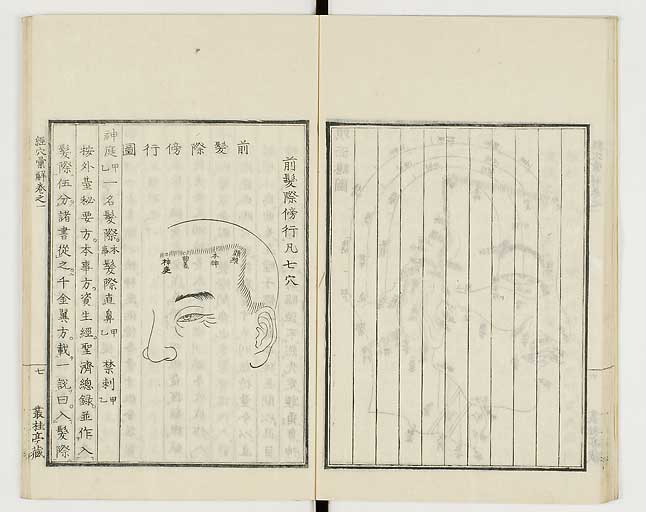 前髮際傍行凡七穴
前髮際傍行圖
頭維
本神
曲差
神庭
神庭甲乙一名髮際本事髮際直鼻甲乙禁刺甲乙
按外臺秘要方。本事方。資生經。聖濟總錄。並作入
髮際伍分。諸書從之。千金翼方。載一說。曰。入髮際
經穴彙解卷之一
七
叢桂亭藏